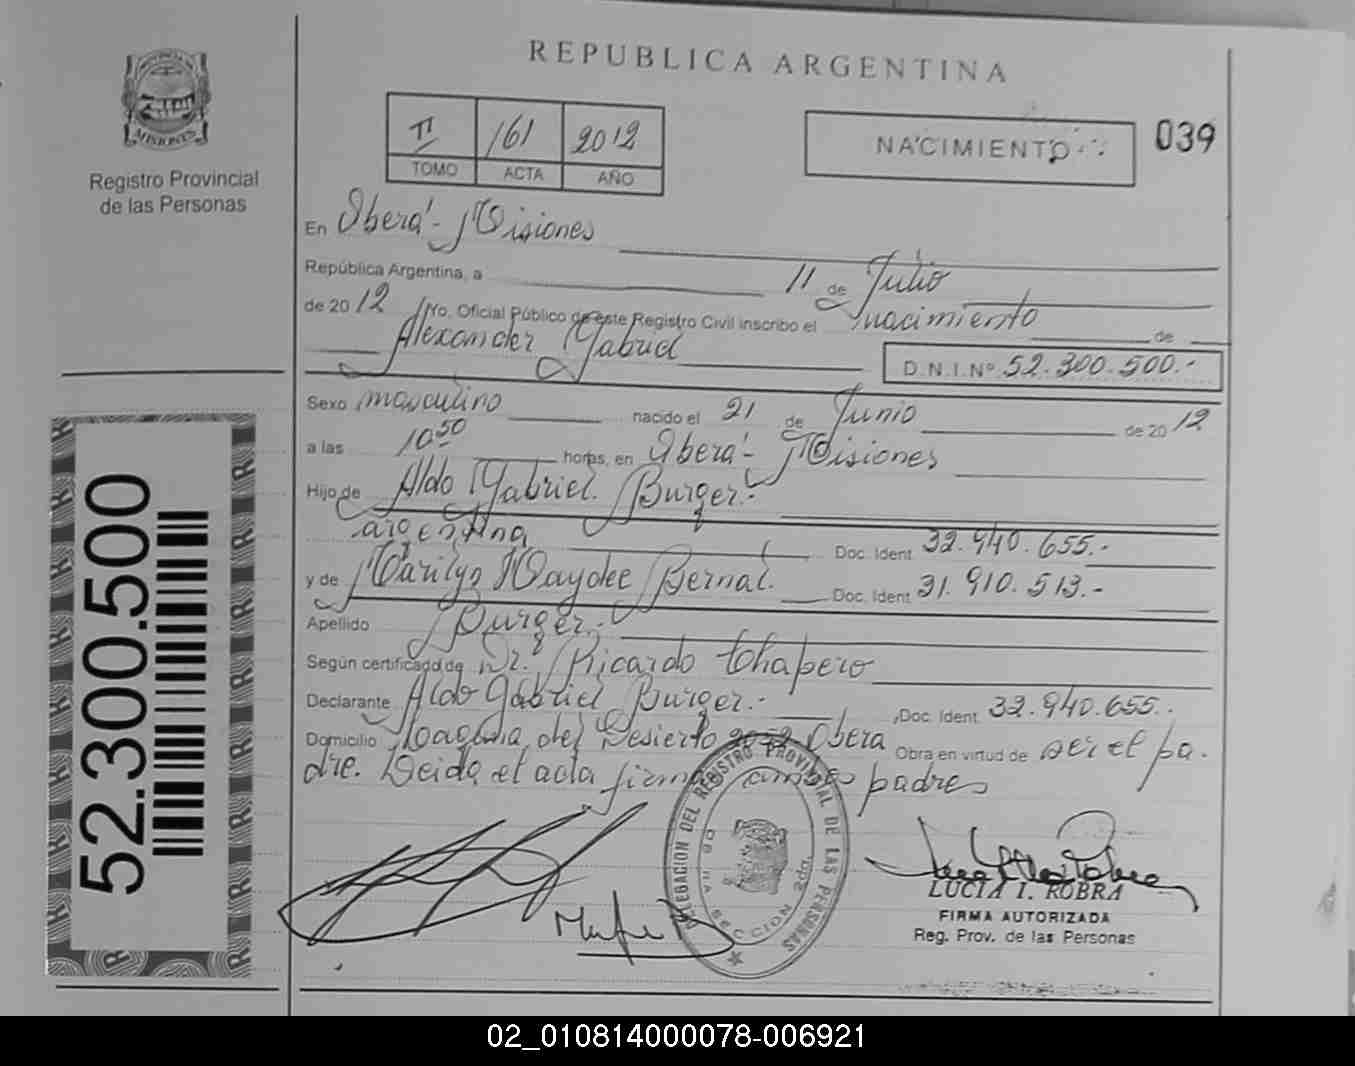 REPUBLICA ARGENTINA
MISIONES
Registro Provincial
de las Personas
II 161 2012
TOMO ACTA AÑO
NACIMIENTO
039
En Oberá - Misiones
República Argentina, a 11 de Julio
de 2012 Yo. Oficial Público de este Registro Civil inscribo el nacimiento de
Alexander Gabriel D.N.I.Nº 52.300.500.-
Sexo masculino nacido el 21 de Junio de 2012
a las 10 50 horas, en Oberá - Misiones
Hijo de Aldo Gabriel Burger.-
argentina Doc. Ident 32.940.655.-
y de Haydee Bernal. Doc. Ident 31.910.513.-
Apellido Burger.-
Según certificado de Dr. Ricardo
Declarante Aldo Gabriel Burger.- Doc. Ident 32.940.655.
Domicilio Laguna del Desierto Obera Obra en virtud de ser el pa.
dre. Leida el acta firman ambos padres
52.300.500
DELEGACION DEL REGISTRO PROVINCIAL DE LAS PERSONAS
OBERA SECCION 2da.
LUCIA I. ROBRA
FIRMA AUTORIZADA
Reg. Prov. de las Personas
02_010814000078-006921